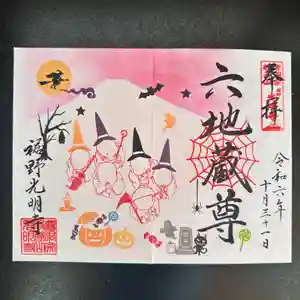 奉拝
六地蔵尊
令和六年
十月三十一日
福野光明寺